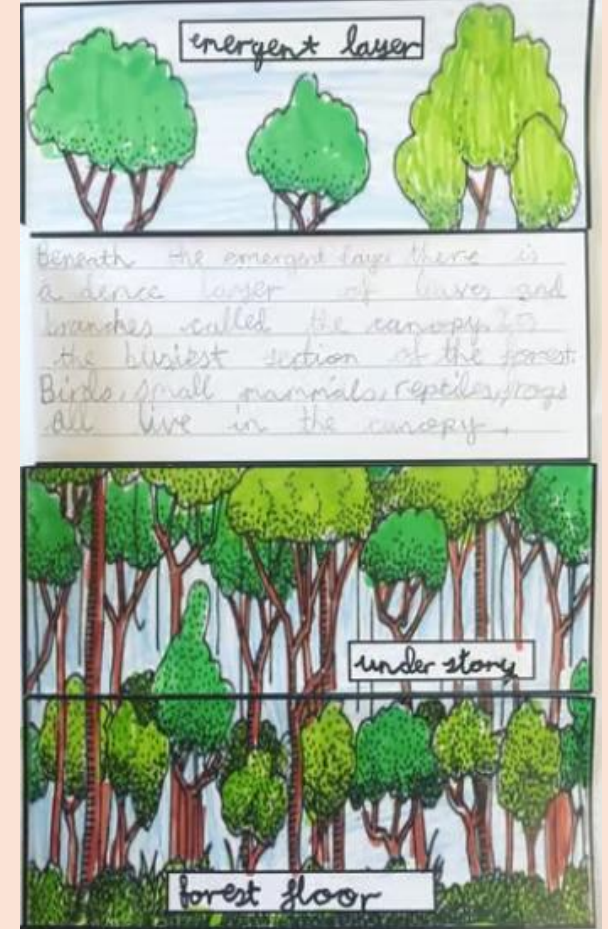 emergent layer
Beneath the emergent layer there is
a dence layer of leaves and
branches called the canopy. Is
the busiest section of the forest.
Birds, small mammals, reptiles, frogs
all live in the canopy.
under story
forest floor